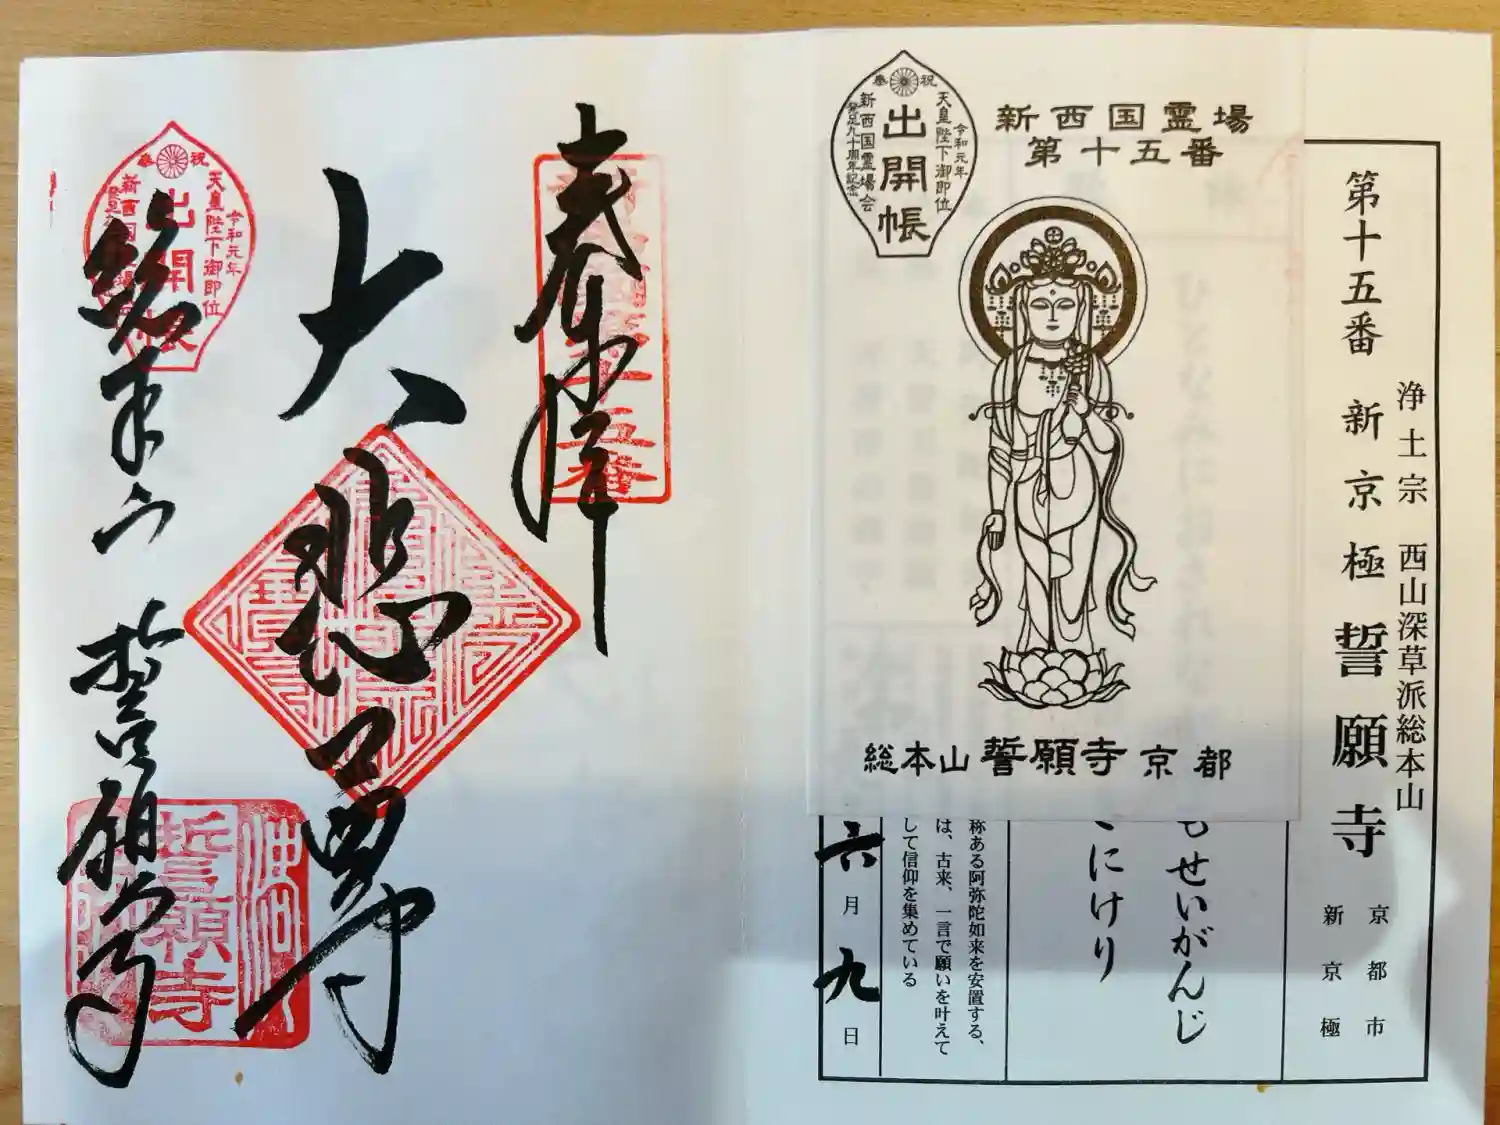 第十五番 新京極 誓願寺
浄土宗 西山深草派総本山
京都市
新京極
新西国霊場
第十五番
祝
奉
令和元年
天皇陛下御即位
出開帳
新西国霊場会
発足九十周年記念
総本山 誓願寺 京都
もせいがんじ
にけり
称ある阿弥陀如来を安置する、
は、古来、一言で願いを叶えて
して信仰を集めている
六月九日
奉拝
十五番
大悲尊
祝
奉
令和元年
天皇陛下御即位
出開帳
新西国
総本山 誓願寺
誓願寺